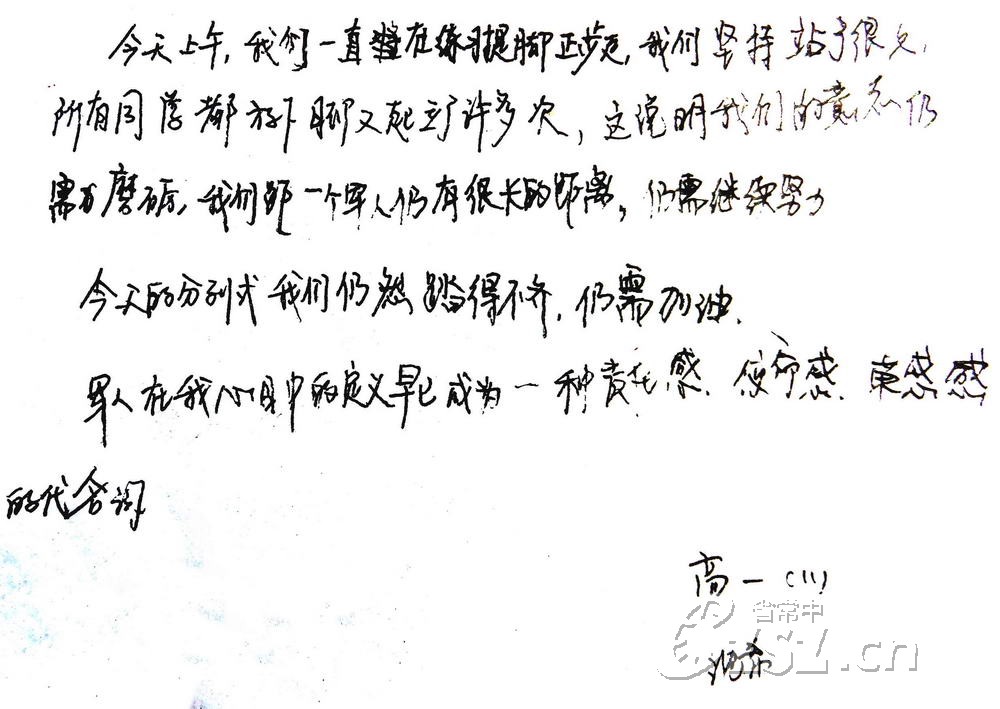 今天上午,我们一直在练习提脚正步走,我们坚持站了很久,
所有同学都放下脚又起立了许多次,这说明我们的意志仍
需要磨砺,我们距一个军人仍有很长的距离,仍需继续努力
今天的分列式我们仍然踏得不齐,仍需加油.
军人在我心目中的定义早已成为一种责任感、使命感、荣誉感
的代名词
高一(11)
省常中
CSZ.cn